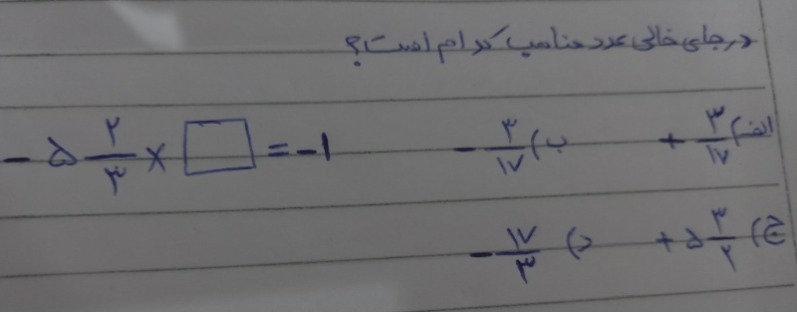 در جای خالی عدد مناسب کدام است؟
- ۵ ۲/۳ × □ = -۱
الف) + ۳/۱۷ ب) - ۳/۱۷
ج) + ۵ ۳/۲ د) - ۱۷/۳